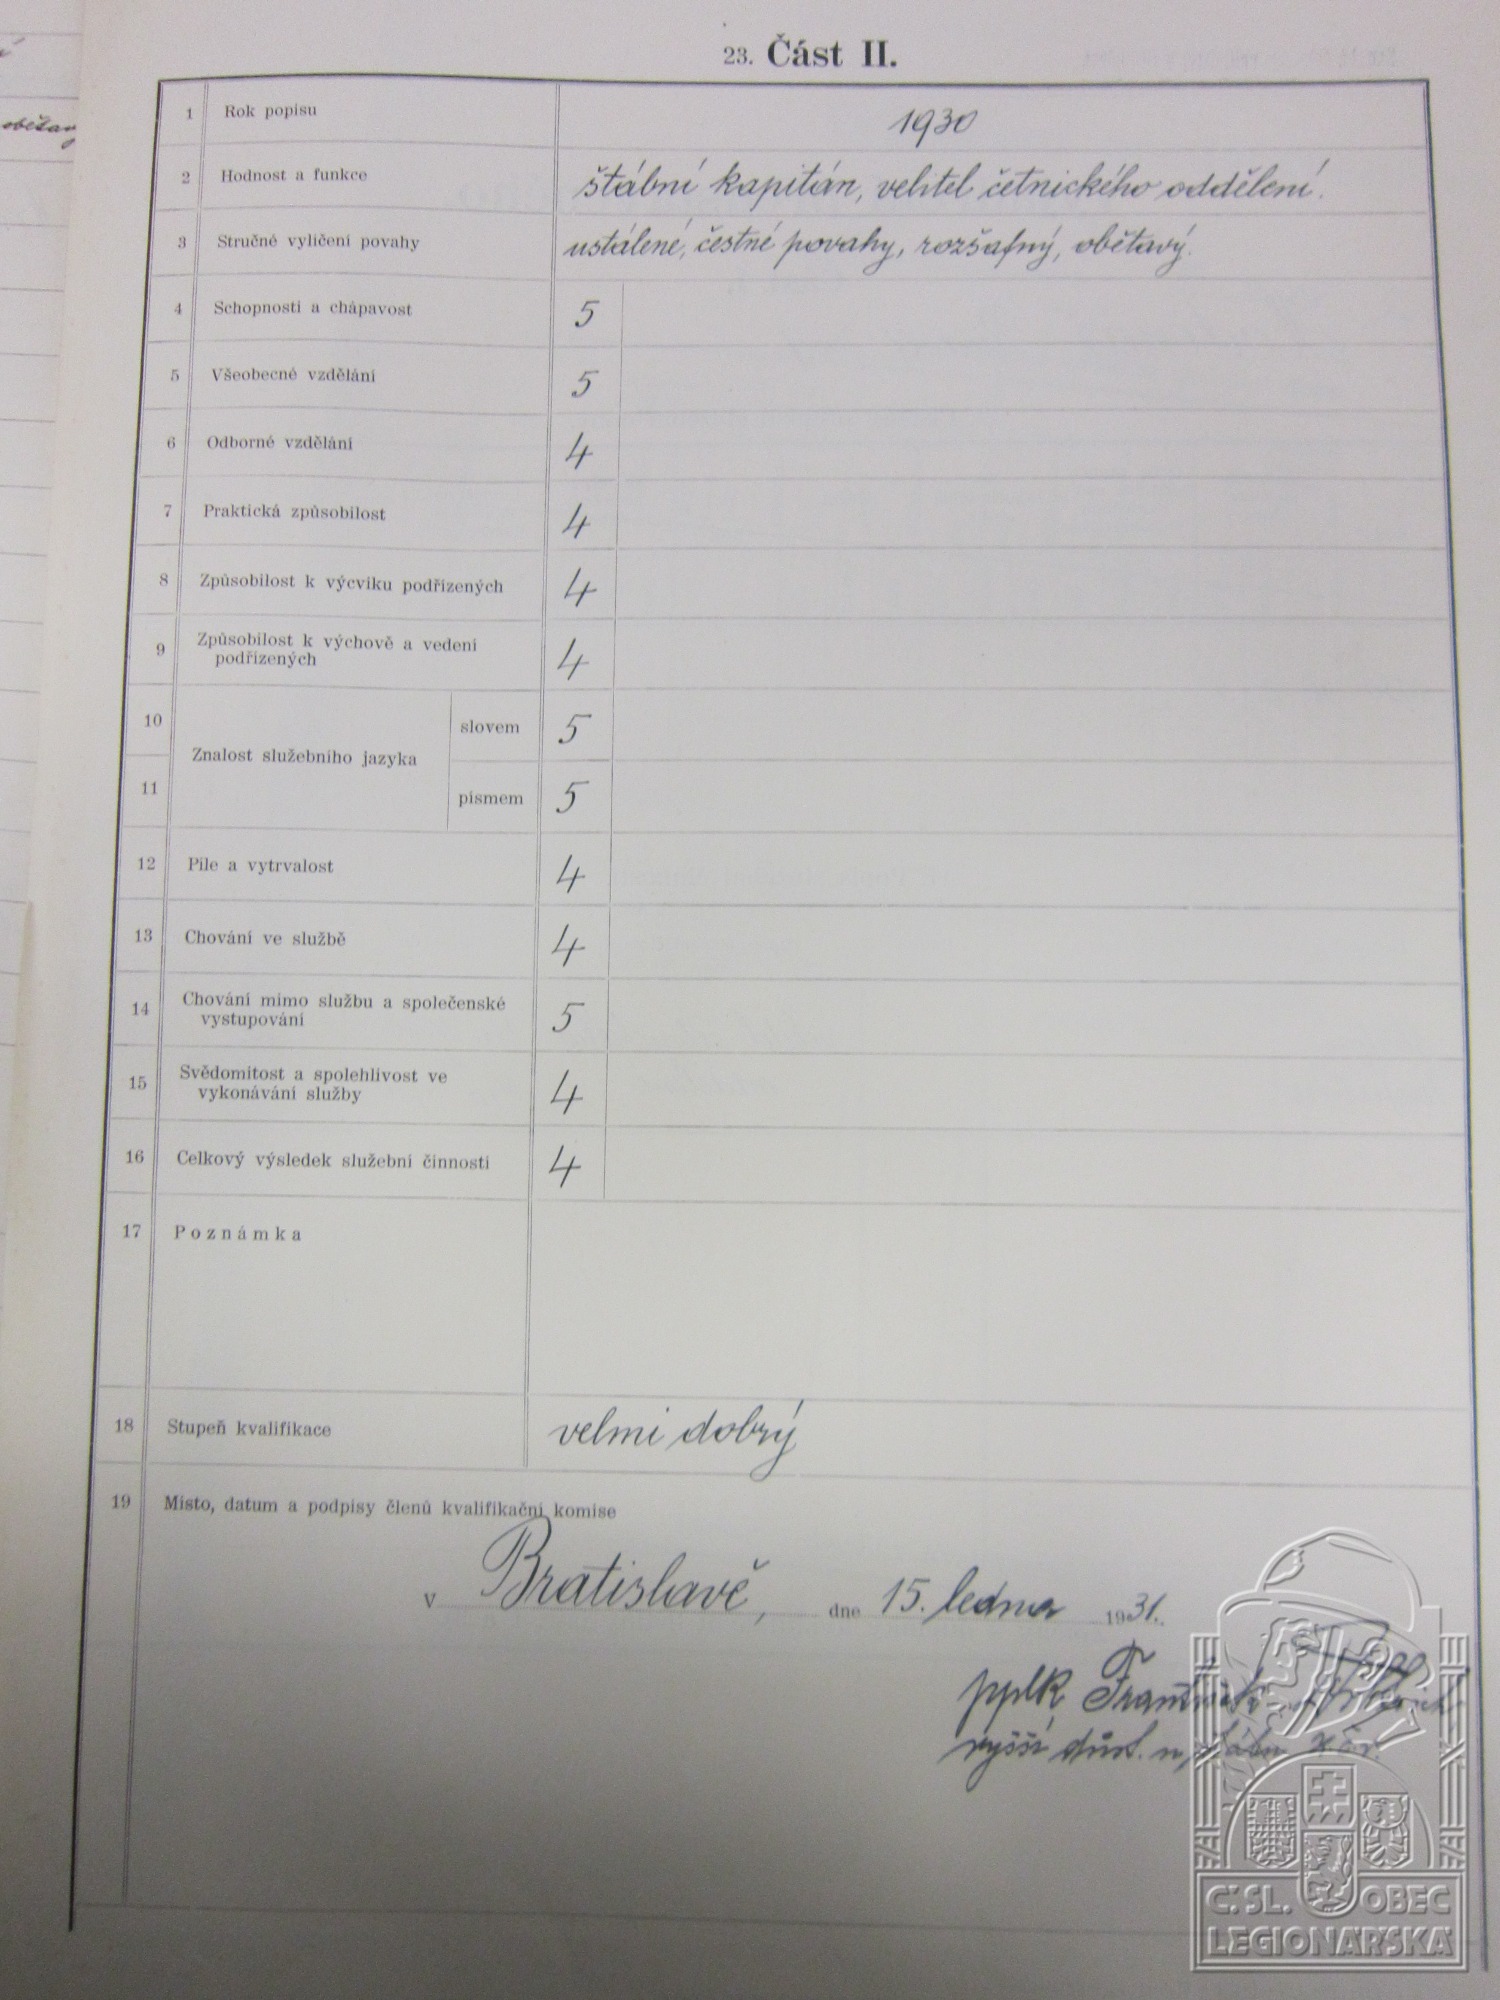 23. Část II.
1 Rok popisu 1930
2 Hodnost a funkce štábní kapitán, velitel četnického oddělení.
3 Stručné vylíčení povahy ustálené, čestné povahy, rozšafný, obětavý.
4 Schopnosti a chápavost 5
5 Všeobecné vzdělání 5
6 Odborné vzdělání 4
7 Praktická způsobilost 4
8 Způsobilost k výcviku podřízených 4
9 Způsobilost k výchově a vedení
podřízených 4
10 slovem 5
Znalost služebního jazyka
11 písmem 5
12 Píle a vytrvalost 4
13 Chování ve službě 4
14 Chování mimo službu a společenské
vystupování 5
15 Svědomitost a spolehlivost ve
vykonávání služby 4
16 Celkový výsledek služební činnosti 4
17 Poznámka
18 Stupeň kvalifikace velmi dobrý
19 Místo, datum a podpisy členů kvalifikační komise
v Bratislavě, dne 15. ledna 1931.
pplk František
vyšší důst.
obětavý
Č.SL. OBEC
LEGIONÁŘSKÁ